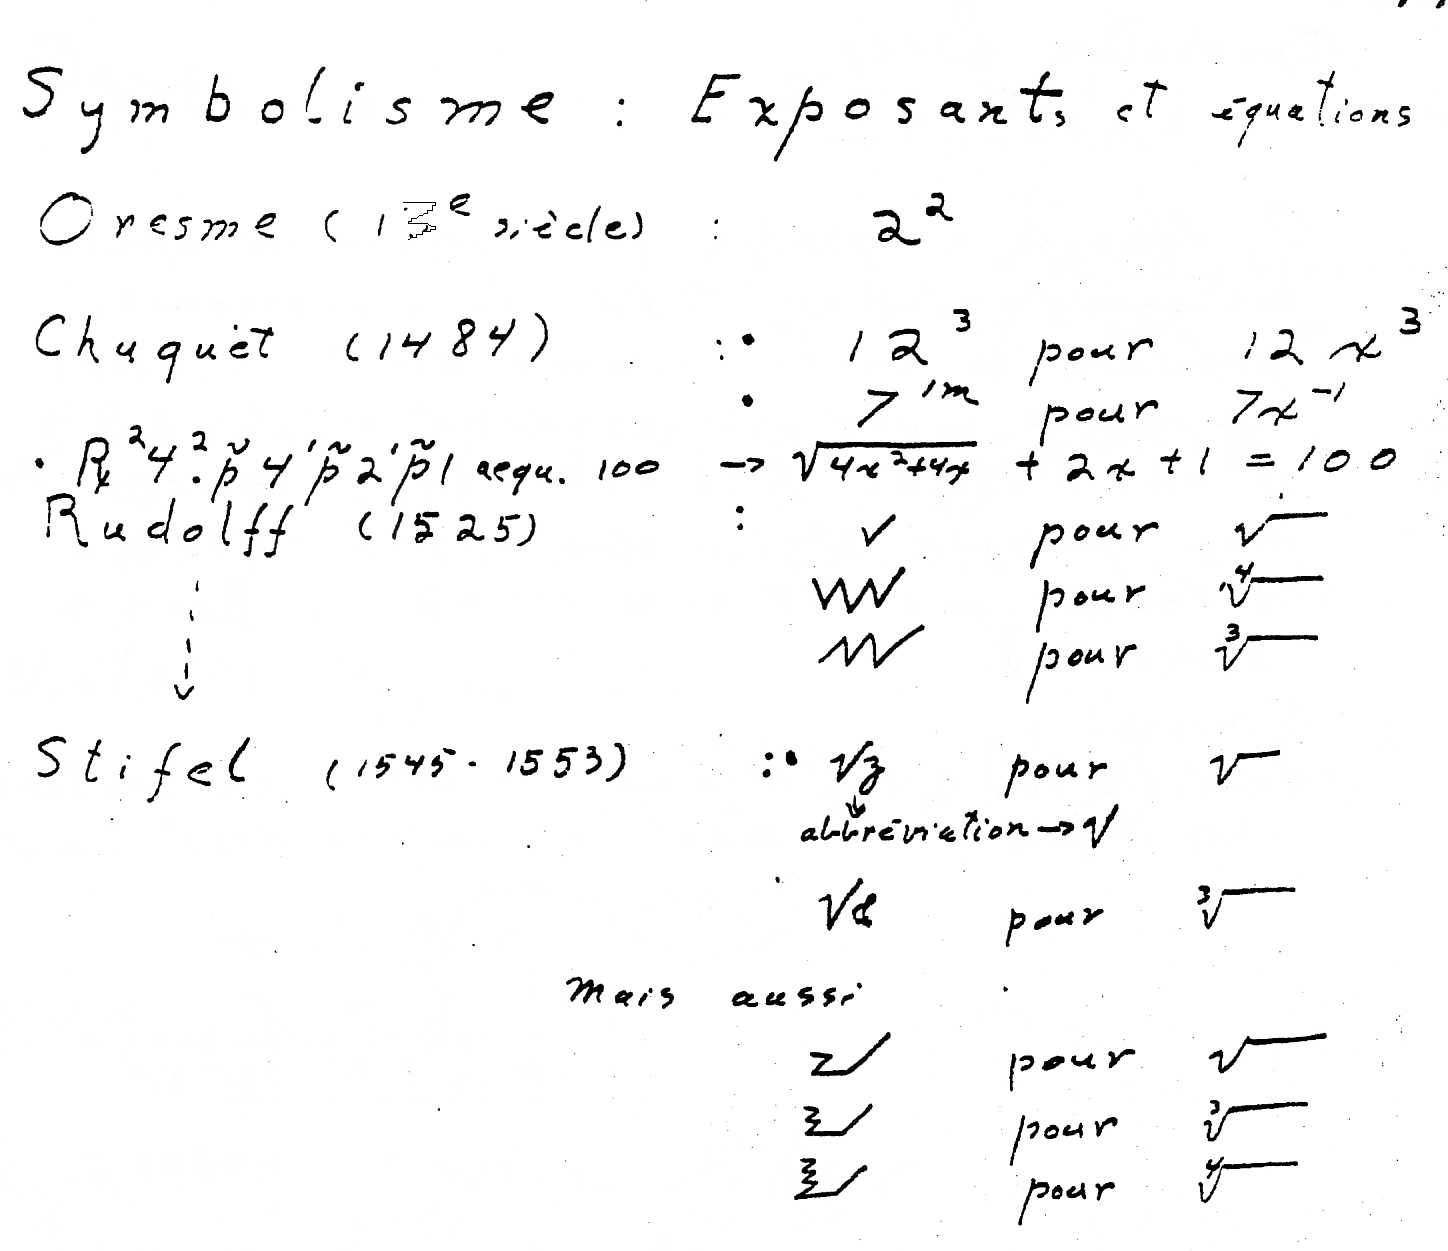 Symbolisme : Exposants et équations
Oresme (13e siècle) : 2²
Chuquet (1484) : • 12³ pour 12 x³
• 7¹ᵐ pour 7x⁻¹
• ℞²4².p̃4¹p̃2¹p̃1 aequ. 100 → √(4x²+4x) + 2x + 1 = 100
Rudolff (1525) : ✓ pour √
pour ∜
pour ∛
Stifel (1545-1553) : • √z pour √
abbréviation → √
pour ∛
Mais aussi
pour √
pour ∛
pour ∜